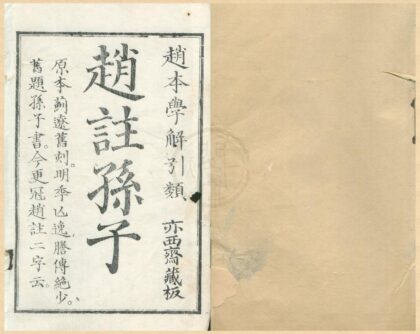 趙本學解引類 亦西齋藏板
趙註孫子
原本薊遼舊刻。明季已逸。謄傳絶少。
舊題孫子書。今更冠趙註二字云。